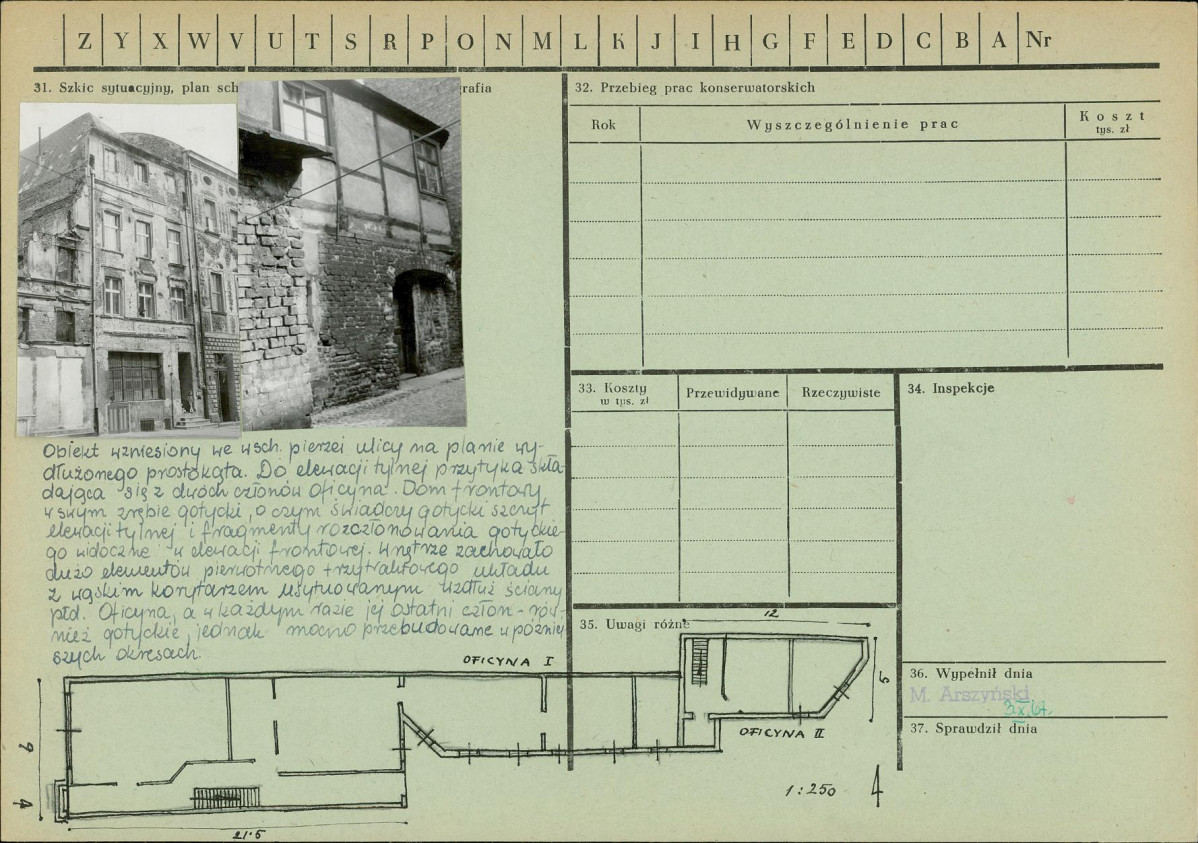 Z Y X W V U T S R P O N M L K J I H G F E D C B A Nr
31. Szkic sytuacyjny, plan sch
grafia
Obiekt wzniesiony we wsch. pierzei ulicy na planie wy-
dłużonego prostokąta. Do elewacji tylnej przytyka skła-
dająca się z dwóch członów oficyna. Dom frontowy
w swym zrębie gotycki, o czym świadczy gotycki szczyt
elewacji tylnej i fragmenty rozczłonowania gotyckie-
go widoczne w elewacji frontowej. Wnętrze zachowało
dużo elementów pierwotnego trzytraktowego układu
z wąskim korytarzem usytuowanym wzdłuż ściany
płd. Oficyna, a w każdym razie jej ostatni człon - rów-
nież gotyckie, jednak mocno przebudowane w później-
szych okresach.
32. Przebieg prac konserwatorskich
Rok
Wyszczególnienie prac
Koszt
tys. zł
33. Koszty
w tys. zł
Przewidywane
Rzeczywiste
34. Inspekcje
35. Uwagi różne
36. Wypełnił dnia
M. Arszyński
3.X.67.
37. Sprawdził dnia
OFICYNA I
OFICYNA II
12
5
9
4
21.5
1:250